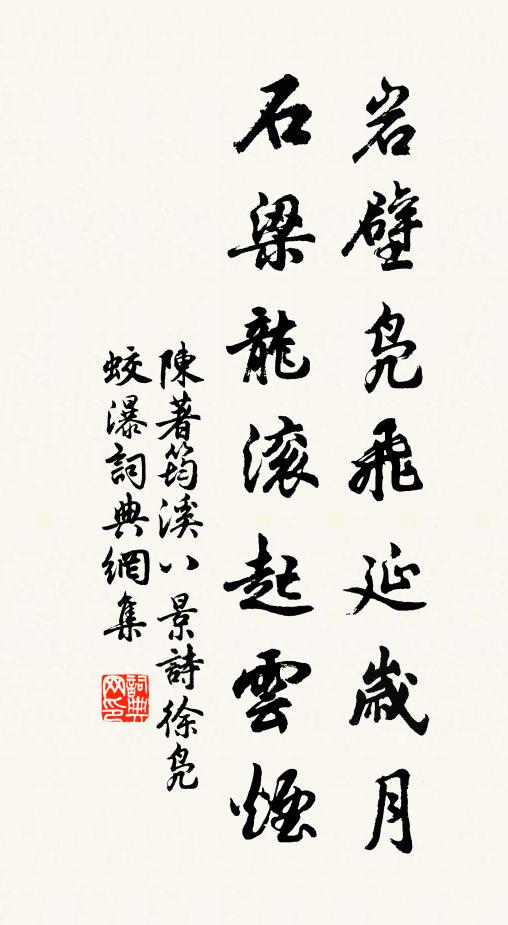 岩壁鳧飛延歲月
石梁龍滚起雲煙
陳著筠溪八景詩徐鳧
蛟瀑詞典網集
詞典網印